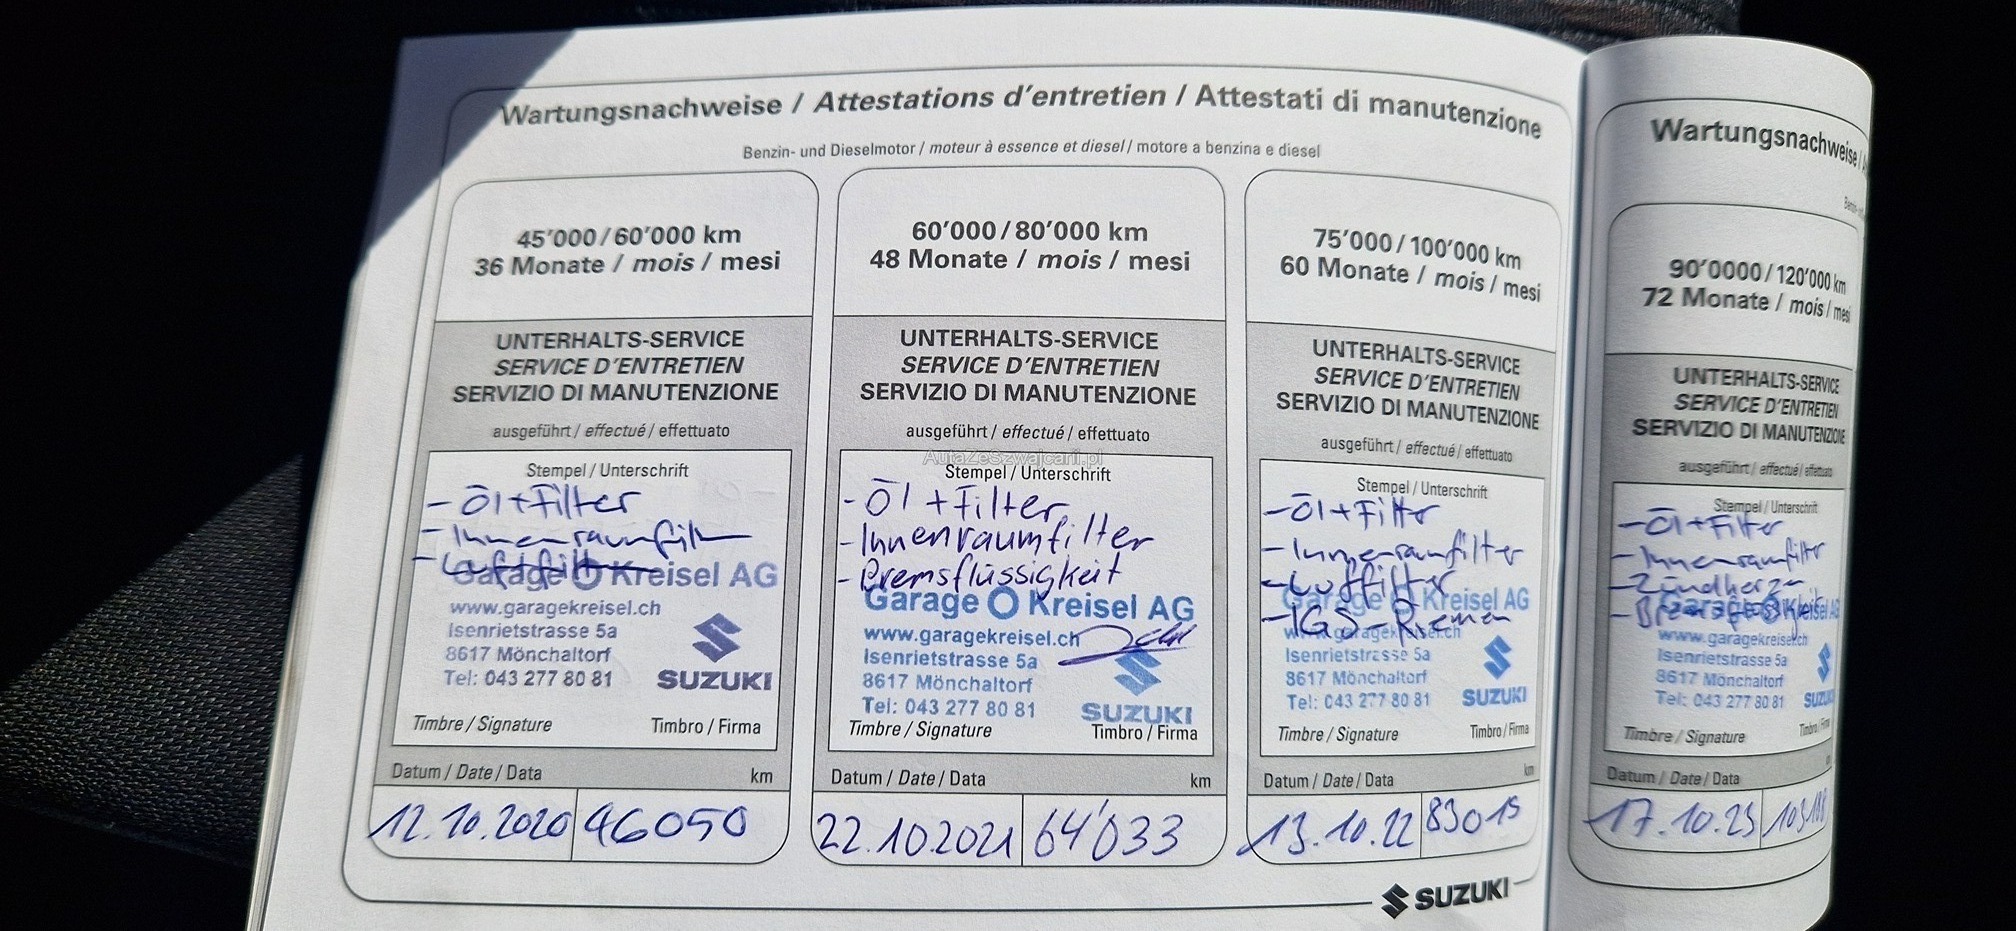 Wartungsnachweise / Attestations d'entretien / Attestati di manutenzione
Benzin- und Dieselmotor / moteur à essence et diesel / motore a benzina e diesel
45'000 / 60'000 km
36 Monate / mois / mesi
UNTERHALTS-SERVICE
SERVICE D'ENTRETIEN
SERVIZIO DI MANUTENZIONE
ausgeführt / effectué / effettuato
Stempel / Unterschrift
- Öl + Filter
- Innenraumfilter
- Luftfilter
Garage Kreisel AG
www.garagekreisel.ch
Isenrietstrasse 5a
8617 Mönchaltorf
Tel: 043 277 80 81
SUZUKI
Timbre / Signature
Timbro / Firma
Datum / Date / Data
km
12.10.2020
46050
60'000 / 80'000 km
48 Monate / mois / mesi
UNTERHALTS-SERVICE
SERVICE D'ENTRETIEN
SERVIZIO DI MANUTENZIONE
ausgeführt / effectué / effettuato
AutaZeSzwajcarii.pl
Stempel / Unterschrift
- Öl + Filter
- Innenraumfilter
- Bremsflüssigkeit
Garage Kreisel AG
www.garagekreisel.ch
Isenrietstrasse 5a
8617 Mönchaltorf
Tel: 043 277 80 81
SUZUKI
Timbre / Signature
Timbro / Firma
Datum / Date / Data
km
22.10.2021
64'033
75'000 / 100'000 km
60 Monate / mois / mesi
UNTERHALTS-SERVICE
SERVICE D'ENTRETIEN
SERVIZIO DI MANUTENZIONE
ausgeführt / effectué / effettuato
Stempel / Unterschrift
- Öl + Filter
- Innenraumfilter
- Luftfilter
- IGS-Riemen
Garage Kreisel AG
www.garagekreisel.ch
Isenrietstrasse 5a
8617 Mönchaltorf
Tel: 043 277 80 81
SUZUKI
Timbre / Signature
Timbro / Firma
Datum / Date / Data
km
13.10.22
83015
SUZUKI
Wartungsnachweise /
90'0000 / 120'000 km
72 Monate / mois / mesi
UNTERHALTS-SERVICE
SERVICE D'ENTRETIEN
SERVIZIO DI MANUTENZIONE
ausgeführt / effectué / effettuato
Stempel / Unterschrift
- Öl + Filter
- Innenraumfilter
- Zündkerzen
- Bremsflüssigkeit
www.garagekreisel.ch
Isenrietstrasse 5a
8617 Mönchaltorf
Tel: 043 277 80 81
Timbre / Signature
Datum / Date / Data
17.10.23